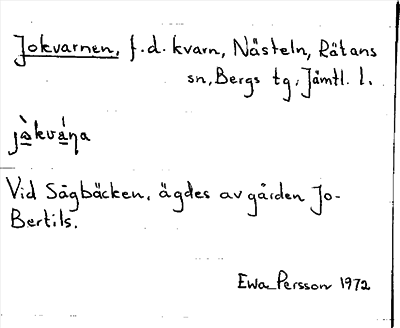 Jokvarnen, f.d. kvarn, Nästeln, Rätans
sn, Bergs tg, Jämtl. l.
jò̱kvá̱ṇa
Vid Sågbäcken, ägdes av gården Jo-
Bertils.
Ewa Persson 1972